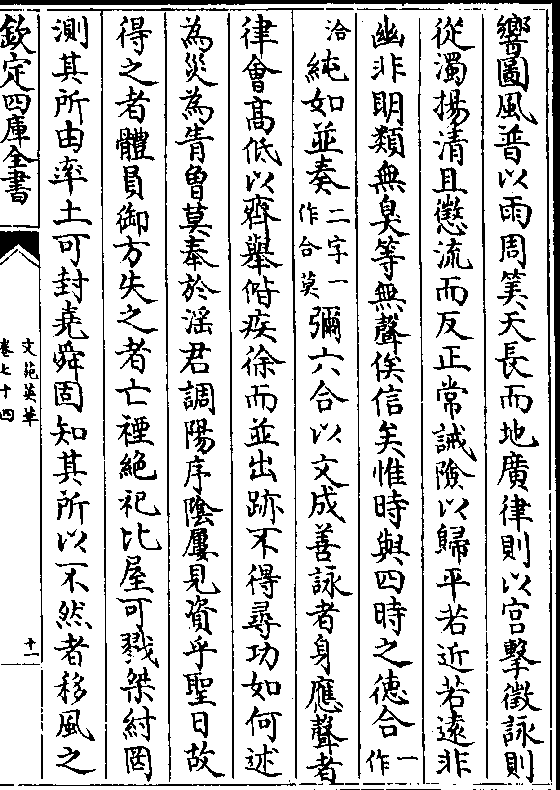 響圖風普以雨周笑天長而地廣律則以宫擊徵詠則
從濁揚清且懲流而反正常誡險以歸平若近若遠非
幽非明類無臭等無聲俟信矣惟時與四時之徳合一作
洽純如並奏二字一作合莫彌六合以文成善詠者身應聲者
律會高低以齊舉偕疾徐而並出跡不得尋功如何述
為災為眚曽莫奉於滛君調陽序陰屢見資乎聖日故
得之者體員御方失之者亡禋絶祀比屋可戮桀紂罔
測其所由率土可封堯舜固知其所以不然者移風之
欽定四庫全書
文苑英華
卷七十四
十一